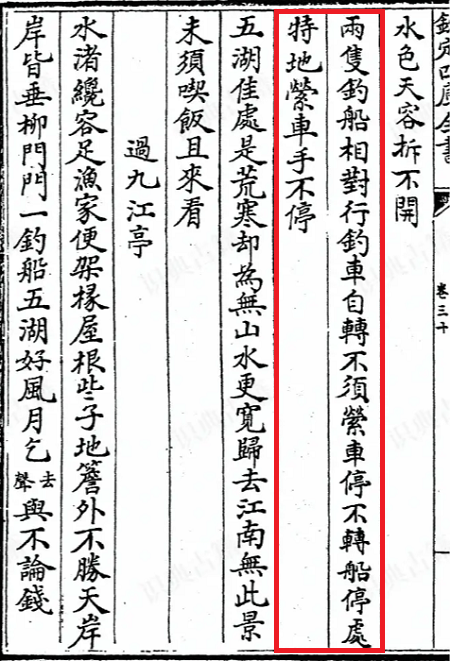 欽定四庫全書
卷三十
水色天容拆不開
兩隻釣船相對行釣車自轉不須縈車停不轉船停處
特地縈車手不停
五湖佳處是荒寒却為無山水更寬歸去江南無此景
未須喫飯且來看
過九江亭
水渚纔容足漁家便架椽屋根些子地簷外不勝天岸
岸皆垂柳門門一釣船五湖好風月乞去聲與不論錢